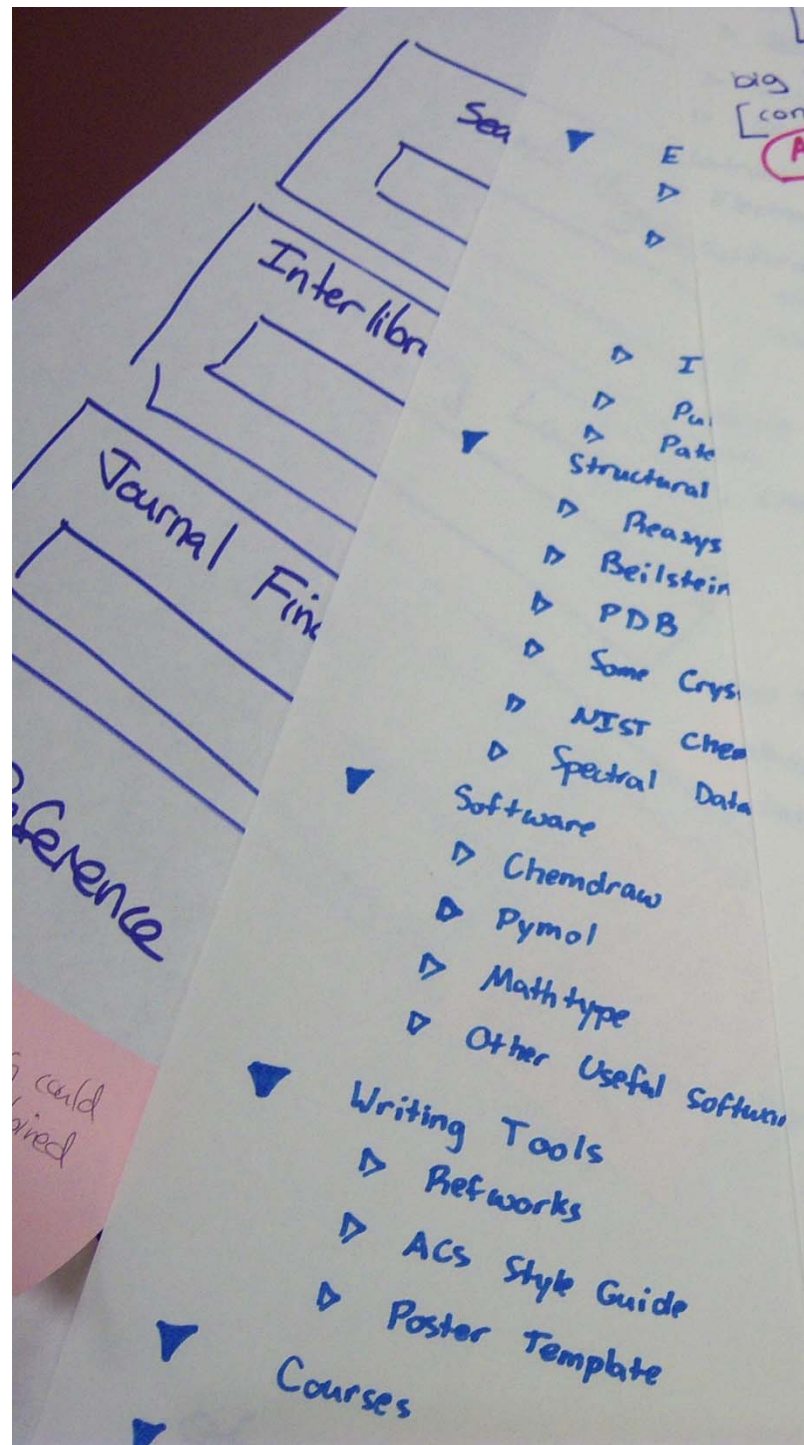 Sea
Interlibr
Journal Fin
eference
could
big
[con
A
E
I
Pu
Pate
Structural
Reaxys
Beilstein
PDB
Some Crys
NIST Chem
Spectral Data
Software
Chemdraw
Pymol
Mathtype
Other Useful Softwar
Writing Tools
Refworks
ACS Style Guide
Poster Template
Courses